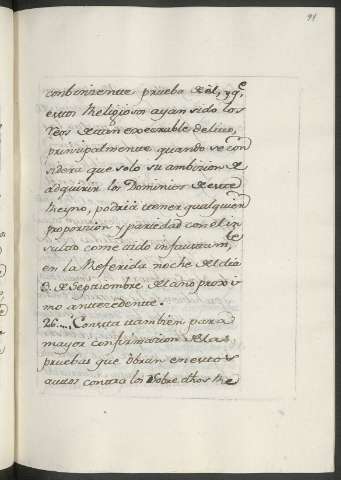 91
conbinzente prueba de èl, y q.e
estos Religiosos ayan sido los
reos de tan execrable delito,
prinsipalmente quando se con
sidera que solo su ambision de
adquirir los Dominios de este
Reyno, podria tener qualquiera
proporsion y pariedad con el in
sulto cometido infaustam.te
en la Referida noche del dia
3. de Septiembre del año proxi
mo antecedente.
26.... Consta tambien para
mayor confirmasion de las
pruebas que obran en estos
autos contra los sobre dhos Re